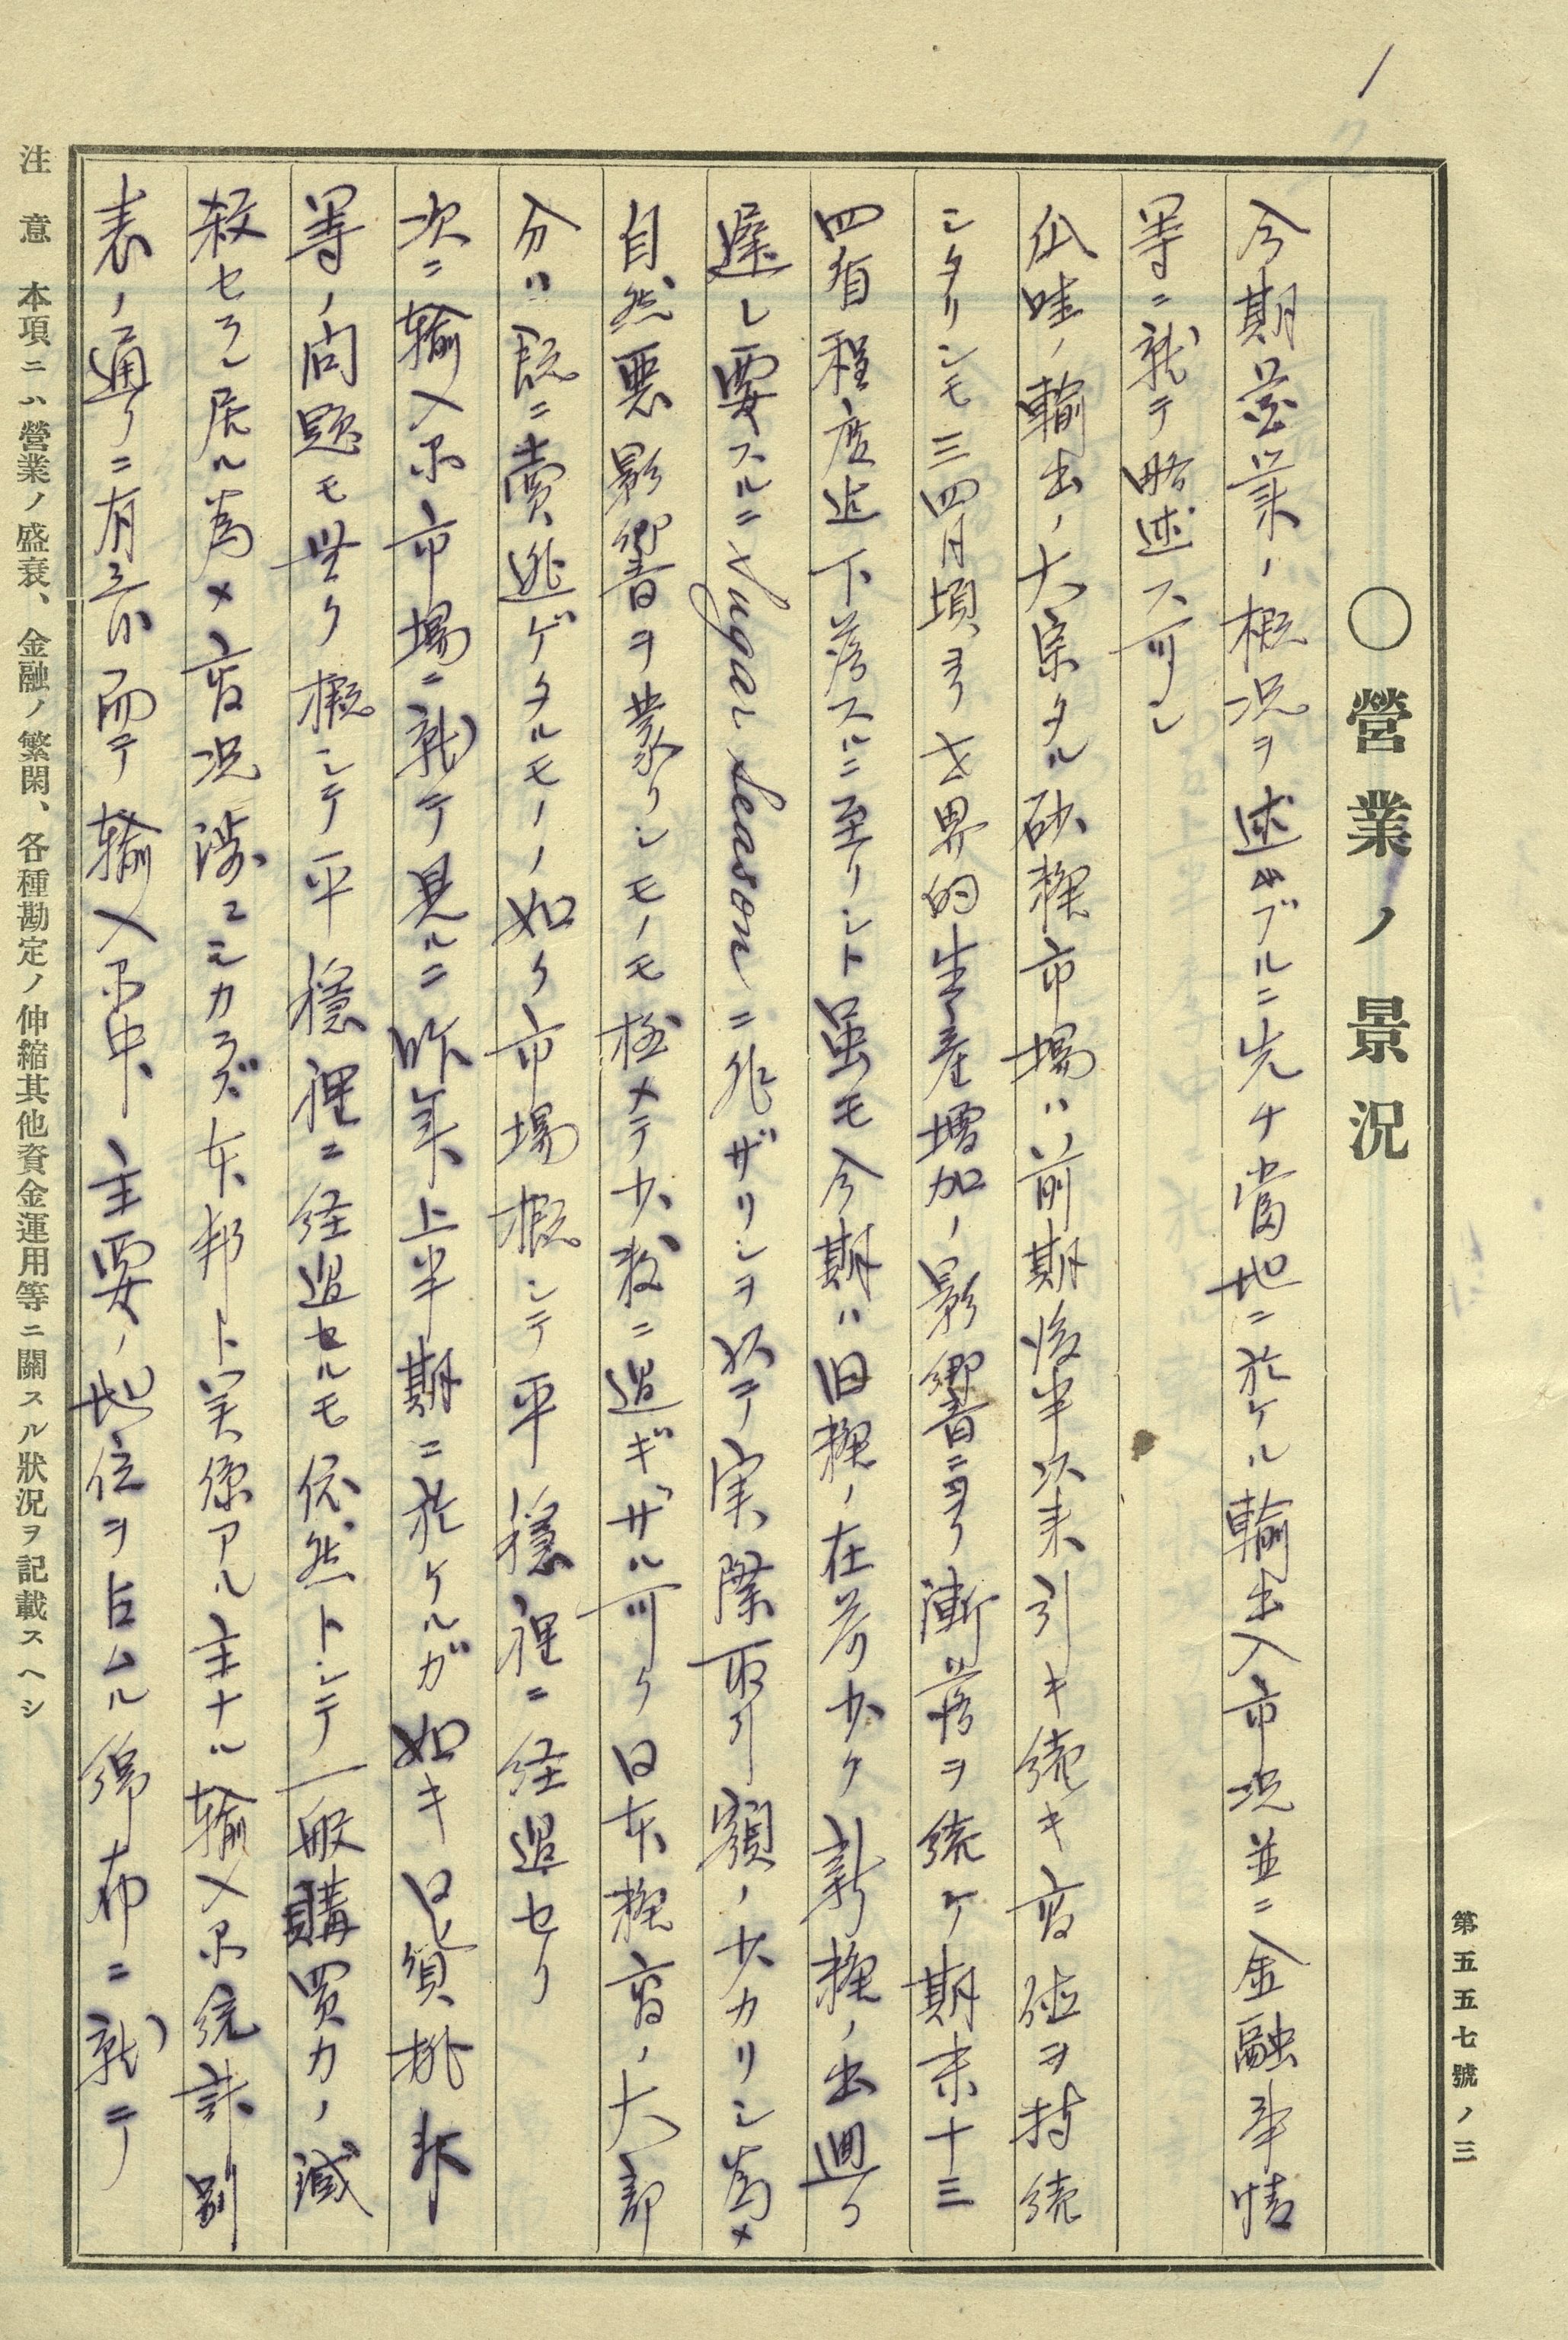 1
第五五七號ノ三
○營業ノ景況
今期営業ノ概況ヲ述ブルニ先チ當地ニ於ケル輸出入市況並ニ金融事情
等ニ就テ略述ス可シ
瓜哇ノ輸出ノ大宗タル砂糖市場ハ前期後半以来引キ続キ商強ヲ持続
シタリシモ三四月頃ヨリ世界的生産増加ノ影響ニヨリ漸落ヲ続ケ期末十三
四盾程度迄下落スルニ至リシト虽モ今期ハ旧糖ノ在荷少ク新糖ノ出廻リ
遅レ要スルニ Sugar Season ニ非ザリシヲ以テ実際取引額ノ少カリシ為メ
自然悪影響ヲ蒙リシモノモ極メテ少数ニ過ギザル可ク日本糖商ノ大部
分ハ既ニ売逃ゲタルモノノ如ク市場概シテ平穏裡ニ経過セリ
次ニ輸入品市場ニ就テ見ルニ昨年上半期ニ於ケルガ如キ日貨排斥
等ノ問題モ無ク概シテ平穏裡ニ経過セルモ依然トシテ一般購買力ノ減
殺セラレ居ル為メ商況渉々シカラズ本邦ト関係アル主ナル輸入品統計別
表ノ通リニ有之而テ輸入品中主要ノ地位ヲ占ムル綿布ニ就テ
注意 本項ニハ營業ノ盛衰、金融ノ繁閑、各種勘定ノ伸縮其他資金運用等ニ關スル狀況ヲ記載スヘシ